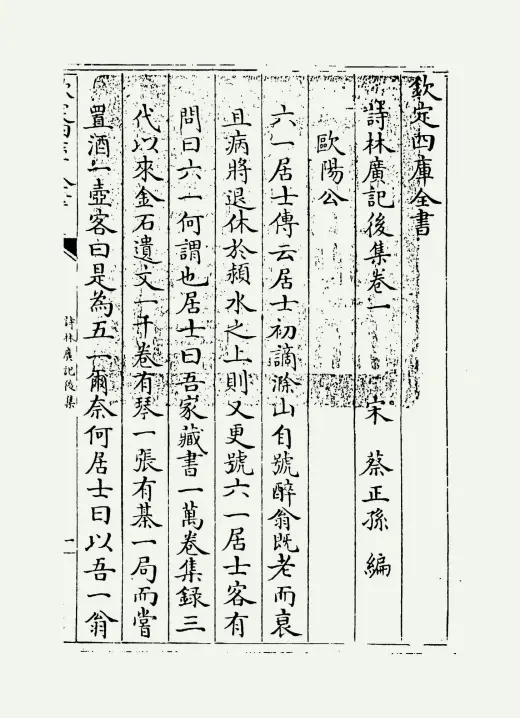 欽定四庫全書
詩林廣記後集卷一
宋 蔡正孫 編
歐陽公
六一居士傳云居士初謫滁山自號醉翁既老而衰
且病將退休於潁水之上則又更號六一居士客有
問曰六一何謂也居士曰吾家藏書一萬卷集錄三
代以來金石遺文一千卷有琴一張有棊一局而嘗
置酒一壺客曰是為五一爾奈何居士曰以吾一翁
詩林廣記後集
一